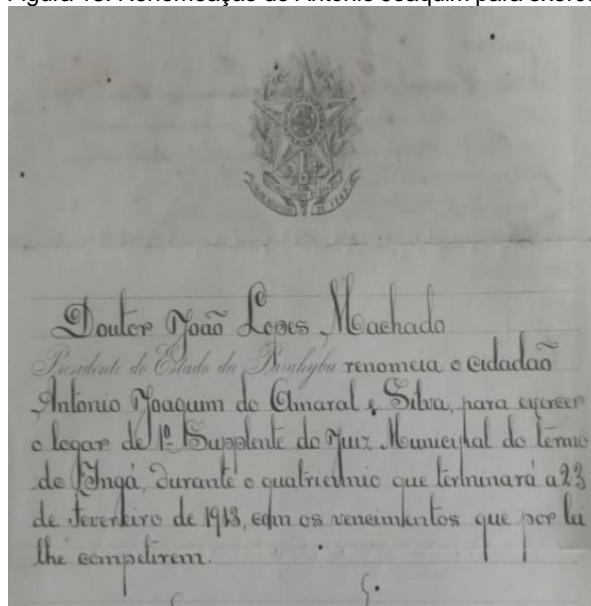 Doutor João Lopes Machado
Presidente do Estado da Parahyba renomeia o cidadão
Antonio Joaquim do Amaral e Silva, para exercer
o logar de 1º Supplente do Juiz Municipal do termo
do Ingá, durante o quatriennio que terminará a 23
de Fevereiro de 1913, com os vencimentos que por lei
lhe competirem.